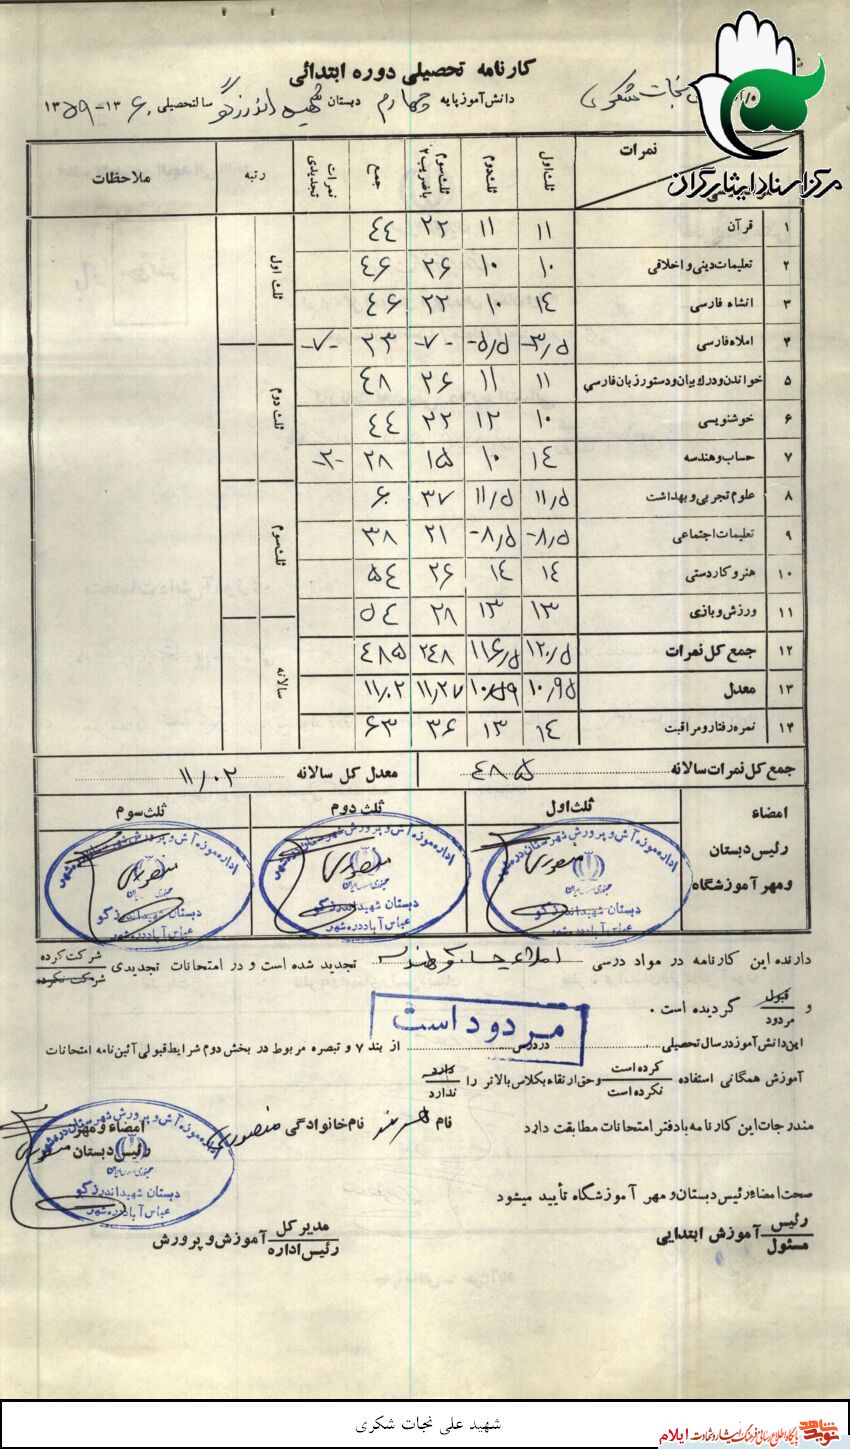 کارنامه تحصیلی دوره ابتدائی
نجات شکری دانش‌آموز پایه چهارم دبستان شهید اندرزگو سال تحصیلی ۱۳۶۰-۱۳۵۹
مرکز اسناد ایثارگران
نمرات ثلث اول ثلث دوم ثلث سوم با ضریب ۲ جمع نمرات تجدیدی رتبه ملاحظات
۱ قرآن ۱۱ ۱۱ ۲۲ ۴۴
۲ تعلیمات دینی و اخلاقی ۱۰ ۱۰ ۲۶ ۴۶
۳ انشاء فارسی ۱۴ ۱۰ ۲۲ ۴۶
۴ املاء فارسی -۳/۵ -۵/۵ -۷- ۲۳ -۷-
۵ خواندن و درک بیان و دستور زبان فارسی ۱۱ ۱۱ ۲۶ ۴۸
۶ خوشنویسی ۱۰ ۱۲ ۲۲ ۴۴
۷ حساب و هندسه ۱۴ ۱۰ ۱۵ ۲۸ -۲-
۸ علوم تجربی و بهداشت ۱۱/۵ ۱۱/۵ ۳۷ ۶۰
۹ تعلیمات اجتماعی -۸/۵ -۸/۵ ۲۱ ۳۸
۱۰ هنر و کاردستی ۱۴ ۱۴ ۲۶ ۵۴
۱۱ ورزش و بازی ۱۳ ۱۳ ۲۸ ۵۴
۱۲ جمع کل نمرات ۱۲۰/۵ ۱۱۶/۵ ۲۴۸ ۴۸۵
۱۳ معدل ۱۰/۹۵ ۱۰/۵۹ ۱۱/۲۷ ۱۱/۰۲
۱۴ نمره رفتار و مراقبت ۱۴ ۱۳ ۳۶ ۶۳
ثلث اول
ثلث دوم
ثلث سوم
سالانه
جمع کل نمرات سالانه ۴۸۵ معدل کل سالانه ۱۱/۰۲
امضاء رئیس دبستان و مهر آموزشگاه ثلث اول ثلث دوم ثلث سوم
اداره آموزش و پرورش شهرستان دره شهر
جمهوری اسلامی ایران
دبستان شهید اندرزگو
عباس آباد دره شهر
منصوری
اداره آموزش و پرورش شهرستان دره شهر
جمهوری اسلامی ایران
دبستان شهید اندرزگو
عباس آباد دره شهر
منصوری
اداره آموزش و پرورش شهرستان دره شهر
جمهوری اسلامی ایران
دبستان شهید اندرزگو
عباس آباد دره شهر
منصوری
دارنده این کارنامه در مواد درسی املاء حساب و هندسه تجدید شده است و در امتحانات تجدیدی شرکت کرده شرکت نکرده
و قبول مردود گردیده است .
مردود است
این دانش‌آموز در سال تحصیلی در درس از بند ۷ و تبصره مربوط در بخش دوم شرایط قبولی آئین‌نامه امتحانات
آموزش همگانی استفاده کرده است نکرده است و حق ارتقاء بکلاس بالاتر را دارد ندارد
مندرجات این کارنامه با دفتر امتحانات مطابقت دارد نام نام خانوادگی منصوری امضاء و مهر رئیس دبستان
اداره آموزش و پرورش شهرستان دره شهر
جمهوری اسلامی ایران
دبستان شهید اندرزگو
عباس آباد دره شهر
صحت امضاء رئیس دبستان و مهر آموزشگاه تأیید میشود
رئیس مسئول آموزش ابتدایی مدیر کل رئیس اداره آموزش و پرورش
شهید علی نجات شکری
نوید شاهد پایگاه اطلاع رسانی فرهنگ ایثار و شهادت ایلام